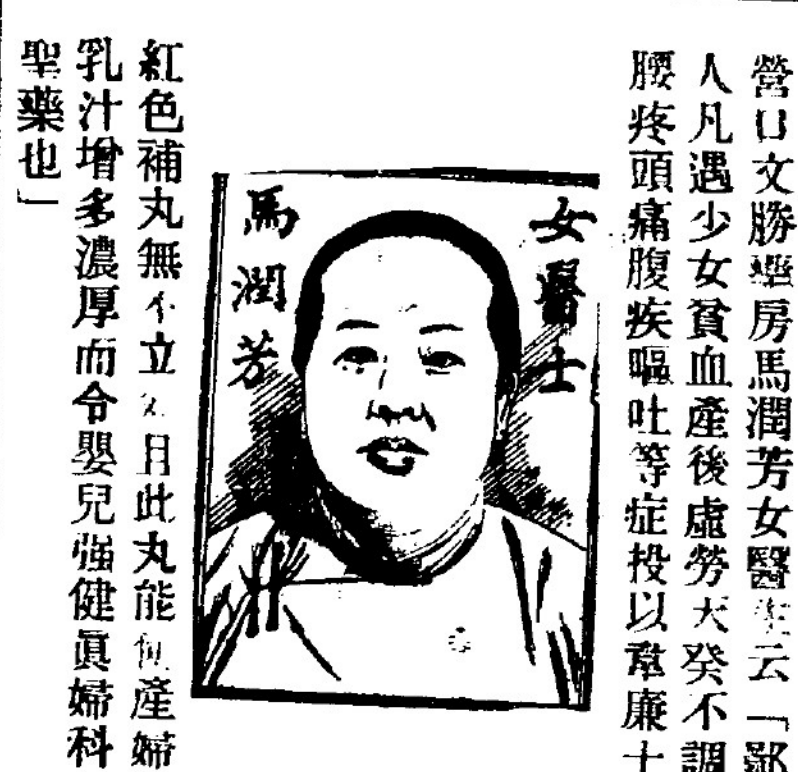 營口文勝藥房馬潤芳女醫生云「鄙
人凡遇少女貧血產後虛勞天癸不調
腰疼頭痛腹疾嘔吐等症投以韋廉士
女醫士
馬潤芳
紅色補丸無不立 且此丸能 產婦
乳汁增多濃厚而令嬰兒强健眞婦科
聖藥也」